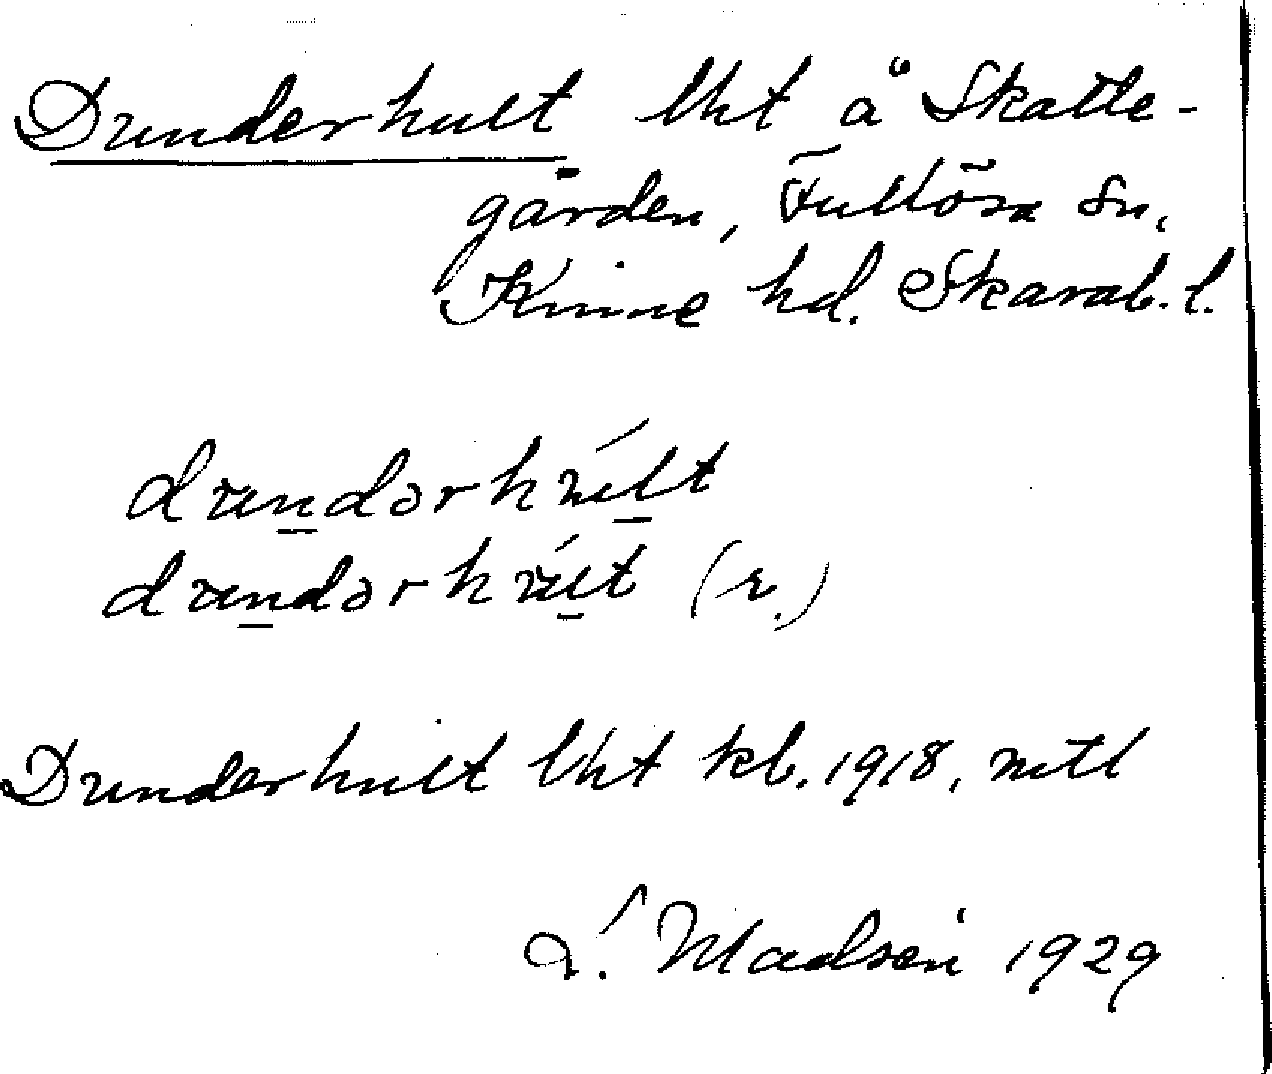 Dunderhult lht å Skatte-
gården, Fullösa sn,
Kinne hd. Skarab. l.
dundərhult
dundərhult (r.)
Dunderhult lht kb. 1918, mtl
Madsen 1929